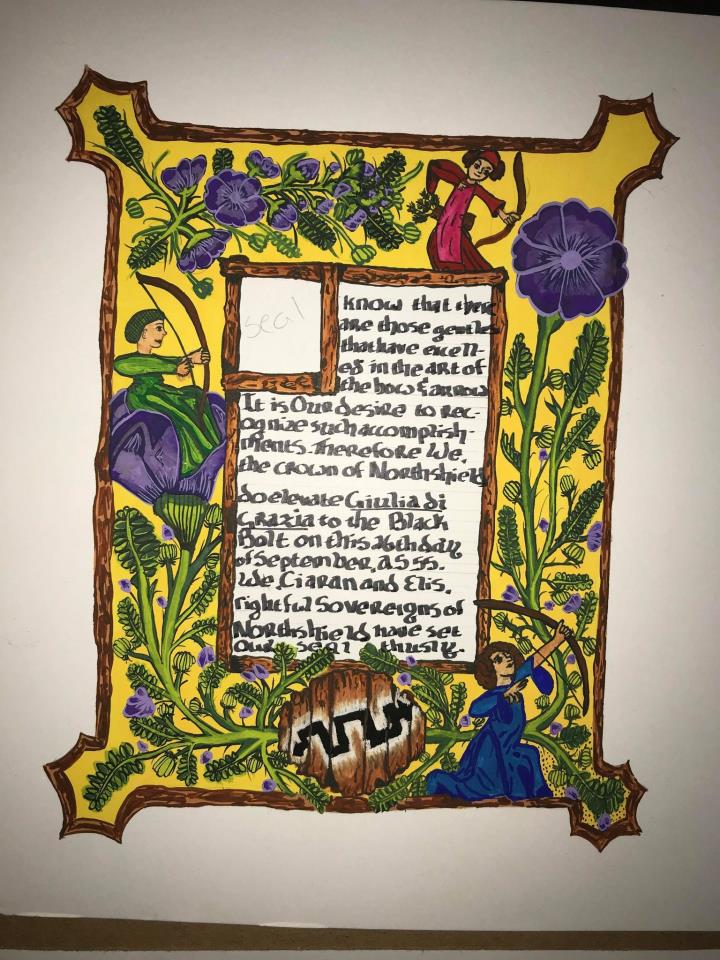 seal
know that there
are those gentles
that have excell-
ed in the art of
the bow & arrow
It is Our desire to rec-
ognize such accomplish-
ments. Therefore We,
the crown of Northshield
do elevate Giulia di
Grazia to the Black
Bolt on this 26th day
of September, AS 55.
We, Ciaran and Elis,
rightful Sovereigns of
Northshield have set
our seal thusly.